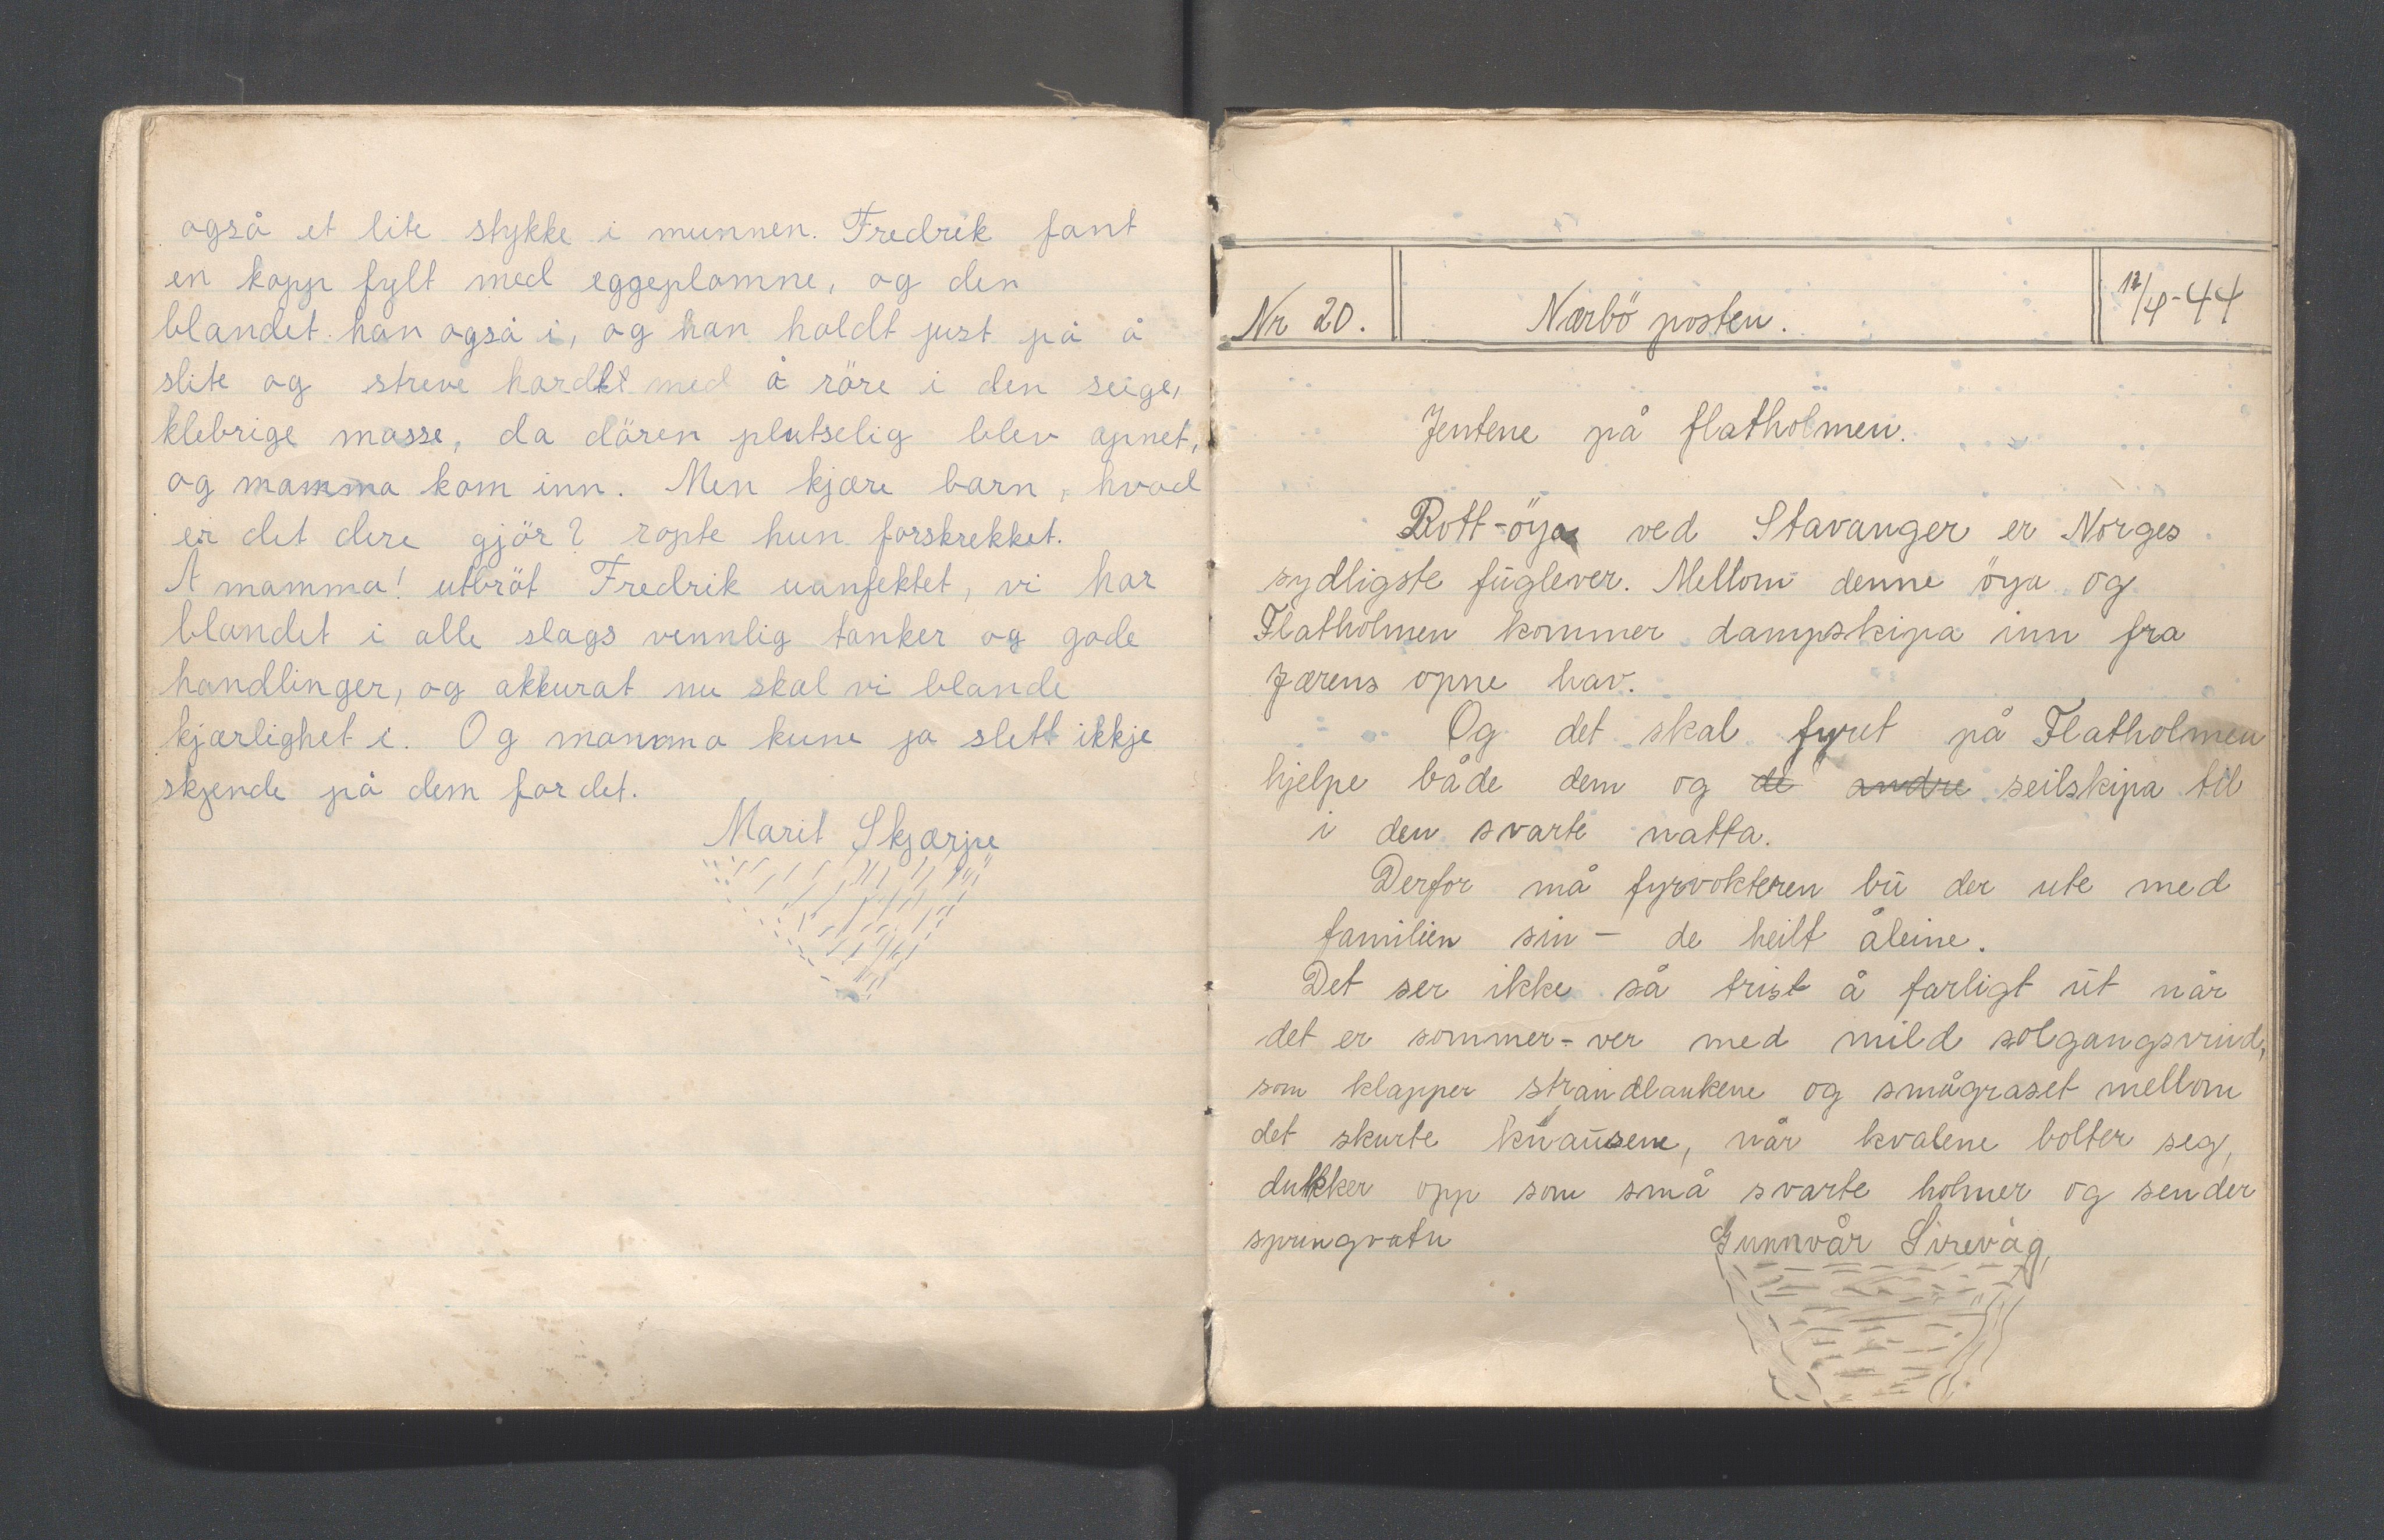 også et lite stykke i munnen. Fredrik fant
en kopp fylt med eggeplomne, og den
blandet han også i, og han holdt just på å
slite og streve hardt med å röre i den seige,
klebrige masse, da dören plutselig blev åpnet,
og mamma kom inn. Men kjære barn, hvad
er det dere gjör? ropte hun forskrekket.
Å mamma! utbröt Fredrik uanfektet, vi har
blandet i alle slags vennlig tanker og gode
handlinger, og akkurat nu skal vi blande
kjærlighet i. Og mamma kune jo slett ikkje
skjende på dem for det.
Marit Skjærpe
Nr 20.
Nærbö posten.
12/4-44
Jentene på flatholmen.
Rott-öya ved Stavanger er Norges
sydligste fuglever. Mellom denne öya og
Flatholmen kommer dampskipa inn fra
Jærens opne hav.
Og det skal fyret på Flatholmen
hjelpe både dem og de andre seilskipa til
i den svarte natta.
Derfor må fyrvokteren bu der ute med
familien sin - de heilt åleine.
Det ser ikke så trist å farligt ut når
det er sommer-ver med mild solgangsvind,
som klapper strandlaukene og smågraset mellom
det skurte knausene, når kvalene bolter seg,
dukker opp som små svarte holmer og sender
springvatn
Gunnvår Sirevåg,